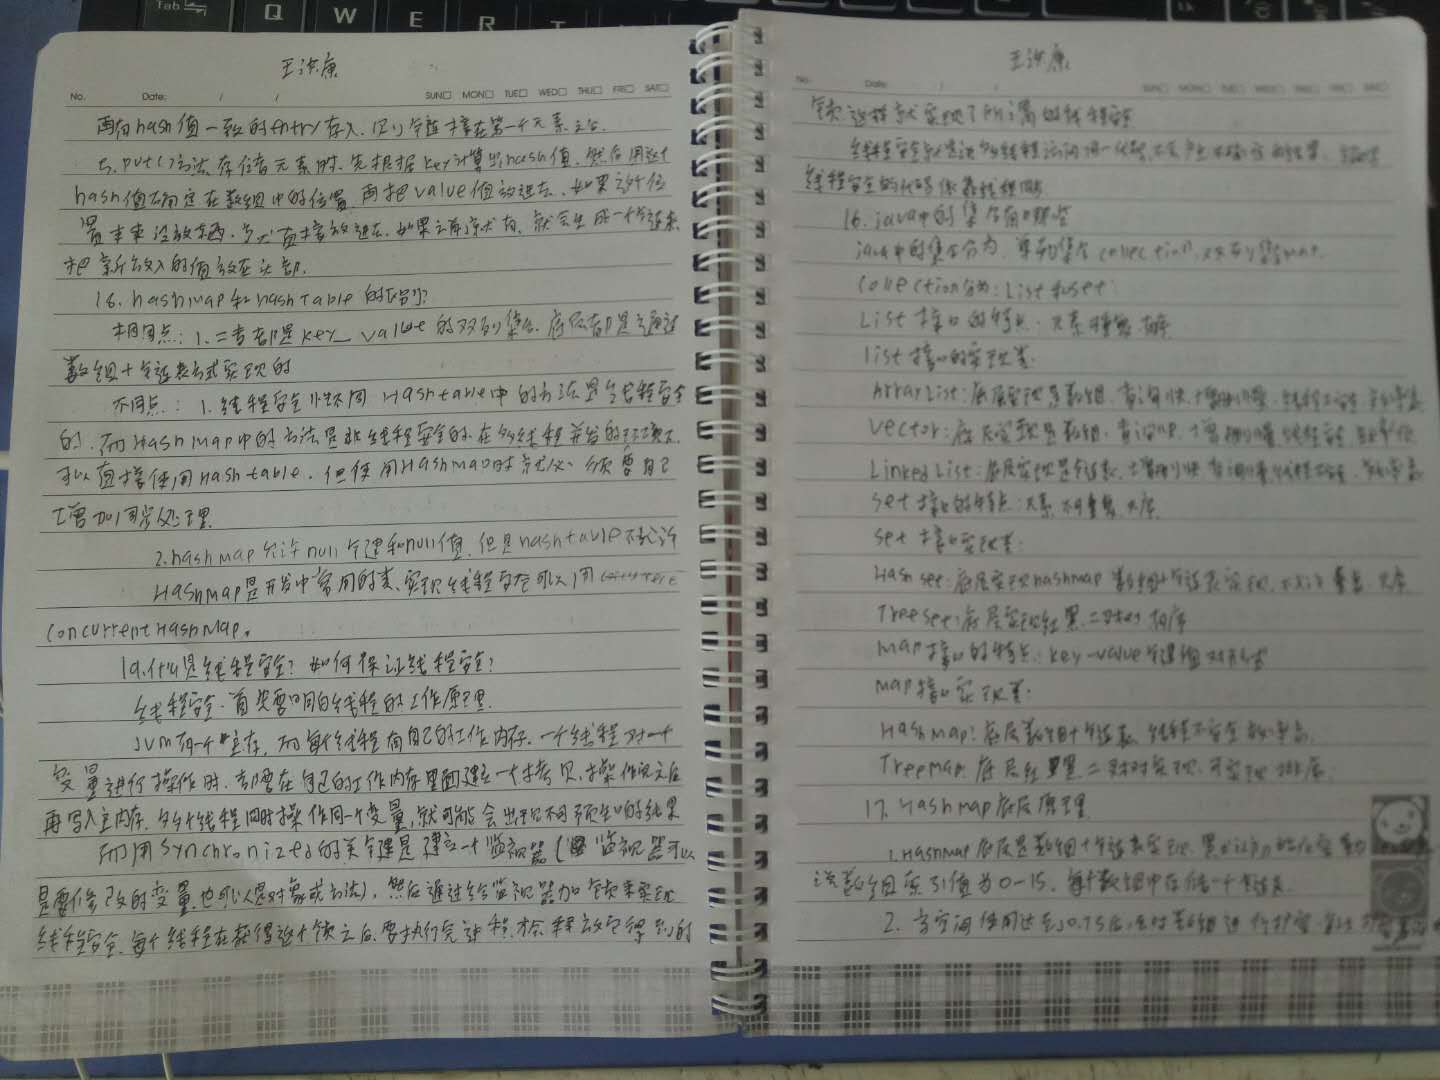 Tab Q W E R T
王 康
No. Date: / / SUN□ MON□ TUE□ WED□ THU□ FRI□ SAT□
再有hash值一致的Entry存入,则 链接在第一个元素之
5. put()方法存储元素时,先根据key计算出hash值,然后用这个
hash值确定在数组中的位置,再把value值放进去,如果这个位
置本来没放东西,就直接放进去,如果之前就有,就会生成一个链表,
把新放入的值放在头部.
18. hashMap和hashTable的区别?
相同点: 1. 二者都是key_value的双列集合,底层都是通过
数组+链表方式实现的
不同点: 1. 线程安全性不同 Hashtable中的方法是线程安全
的,而HashMap中的方法是非线程安全的.在多线程并发的环境下,
可以直接使用Hashtable,但使用HashMap时 必须要自己
增加同步处理
2.hashMap允许null键和null值,但是hashtable不允许
HashMap是开发中常用的类,实现线程安全可以用
ConcurrentHashMap.
19.什么是线程安全? 如何保证线程安全?
线程安全,首先要明白线程的工作原理.
JVM有一个主存,而每个线程有自己的工作内存,一个线程对一个
变量进行操作时,都要在自己的工作内存里面建立一个拷贝,操作完之后
再写入主内存.多个线程同时操作同一个变量,就可能会出现不可预知的结果
而用synchronized的关键是建立一个监视器( 监视器可以
是要修改的变量,也可以是对象或方法),然后通过给监视器加锁来实现
线程安全,每个线程在获得这个锁之后,要执行完 释放它得到的
王 康
No. Date: / / SUN□ MON□ TUE□ WED□ THU□ FRI□ SAT□
锁,这样就实现了所谓的线程安全
线程安全就是说多线程访问同一代码,不会产生不确定的结果.
线程安全的代码依靠线程同步.
16. java中的集合有哪些
java中的集合分为,单列集合collection,双列集合map.
Collection分为: List和set.
List接口的特点: 元素 有序
list接口的实现类:
ArrayList: 底层实现是数组,查询快,增删慢,线程不安全,
Vector: 底层实现是数组,查询快,增删慢,线程安全,
Linked List: 底层实现是链表,增删快,查询慢,线程不安全,
set接口的特点: 元素不可重复,无序
set接口实现类:
Hash set: 底层实现hashmap 数组+链表实现,不允许重复,无序
Tree set: 底层实现红黑二叉树 有序
Map接口的特点: key-value键值对形式
Map接口实现类:
HashMap: 底层数组+链表,线程不安全
TreeMap: 底层红黑二叉树实现,可实现排序
17. Hashmap底层原理
1.HashMap底层是数组+链表实现,
该数组索引值为0-15,每个数组中存储一个链表
2. 当空间使用达到0.75后,会对数组进行扩容,